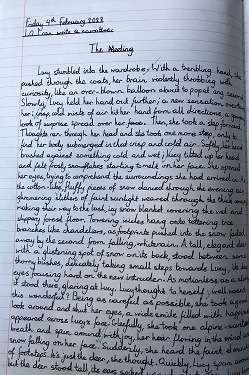 Friday 4th February 2022
LO: I can write a narrative
The Meeting
Lucy stumbled into the wardrobe. With a trembling hand, she
pushed through the coats, her brain violently throbbing with
curiosity, like an over-blown balloon about to pop at any second.
Slowly, Lucy held her hand out further; a new sensation overtook
her; crisp, cold mists of air hit her hand from all directions, a
look of surprise spread over her face. Then, she took a step forward.
Thoughts ran through her head and she took one more step, only to
find her body submerged in that crisp and cold air. Softly, her back
brushed against something cold and wet; Lucy tilted up her head
and felt frosty snowflakes starting to melt on her face. She opened
her eyes, trying to comprehend the surroundings she had arrived in
the cotton-like, fluffy pieces of snow danced through the evening air
glimmering slithers of faint sunlight weaved through the thick
making their way to the last, icy snow blanket covering the wet and
slippery forest floor. Towering icicles hung onto tottering tree
branches like chandeliers, as footprints pushed into the snow faded
away by the second from falling, white rain. A tall, elegant deer
with a glistening spot of snow on its back, stood between some
thorny bushes, delicately taking small steps towards Lucy, its
eyes focusing hard on the new intruder. As motionless as a statue
it stood there, glaring at Lucy. Lucy thought to herself: well wasn't
this wonderful? Being as careful as possible, she took a good
look around and shut her eyes, a wide smile filled with happiness
appeared across Lucy's face. Gleefully, she took one alpine-scented
breath and spun around with joy, her hair flowing in the wind and
snow falling on her face. Suddenly, she heard the faint sound
of footsteps. It's just the deer, she thought. Quickly, Lucy spun
but the deer stood tall, its ears